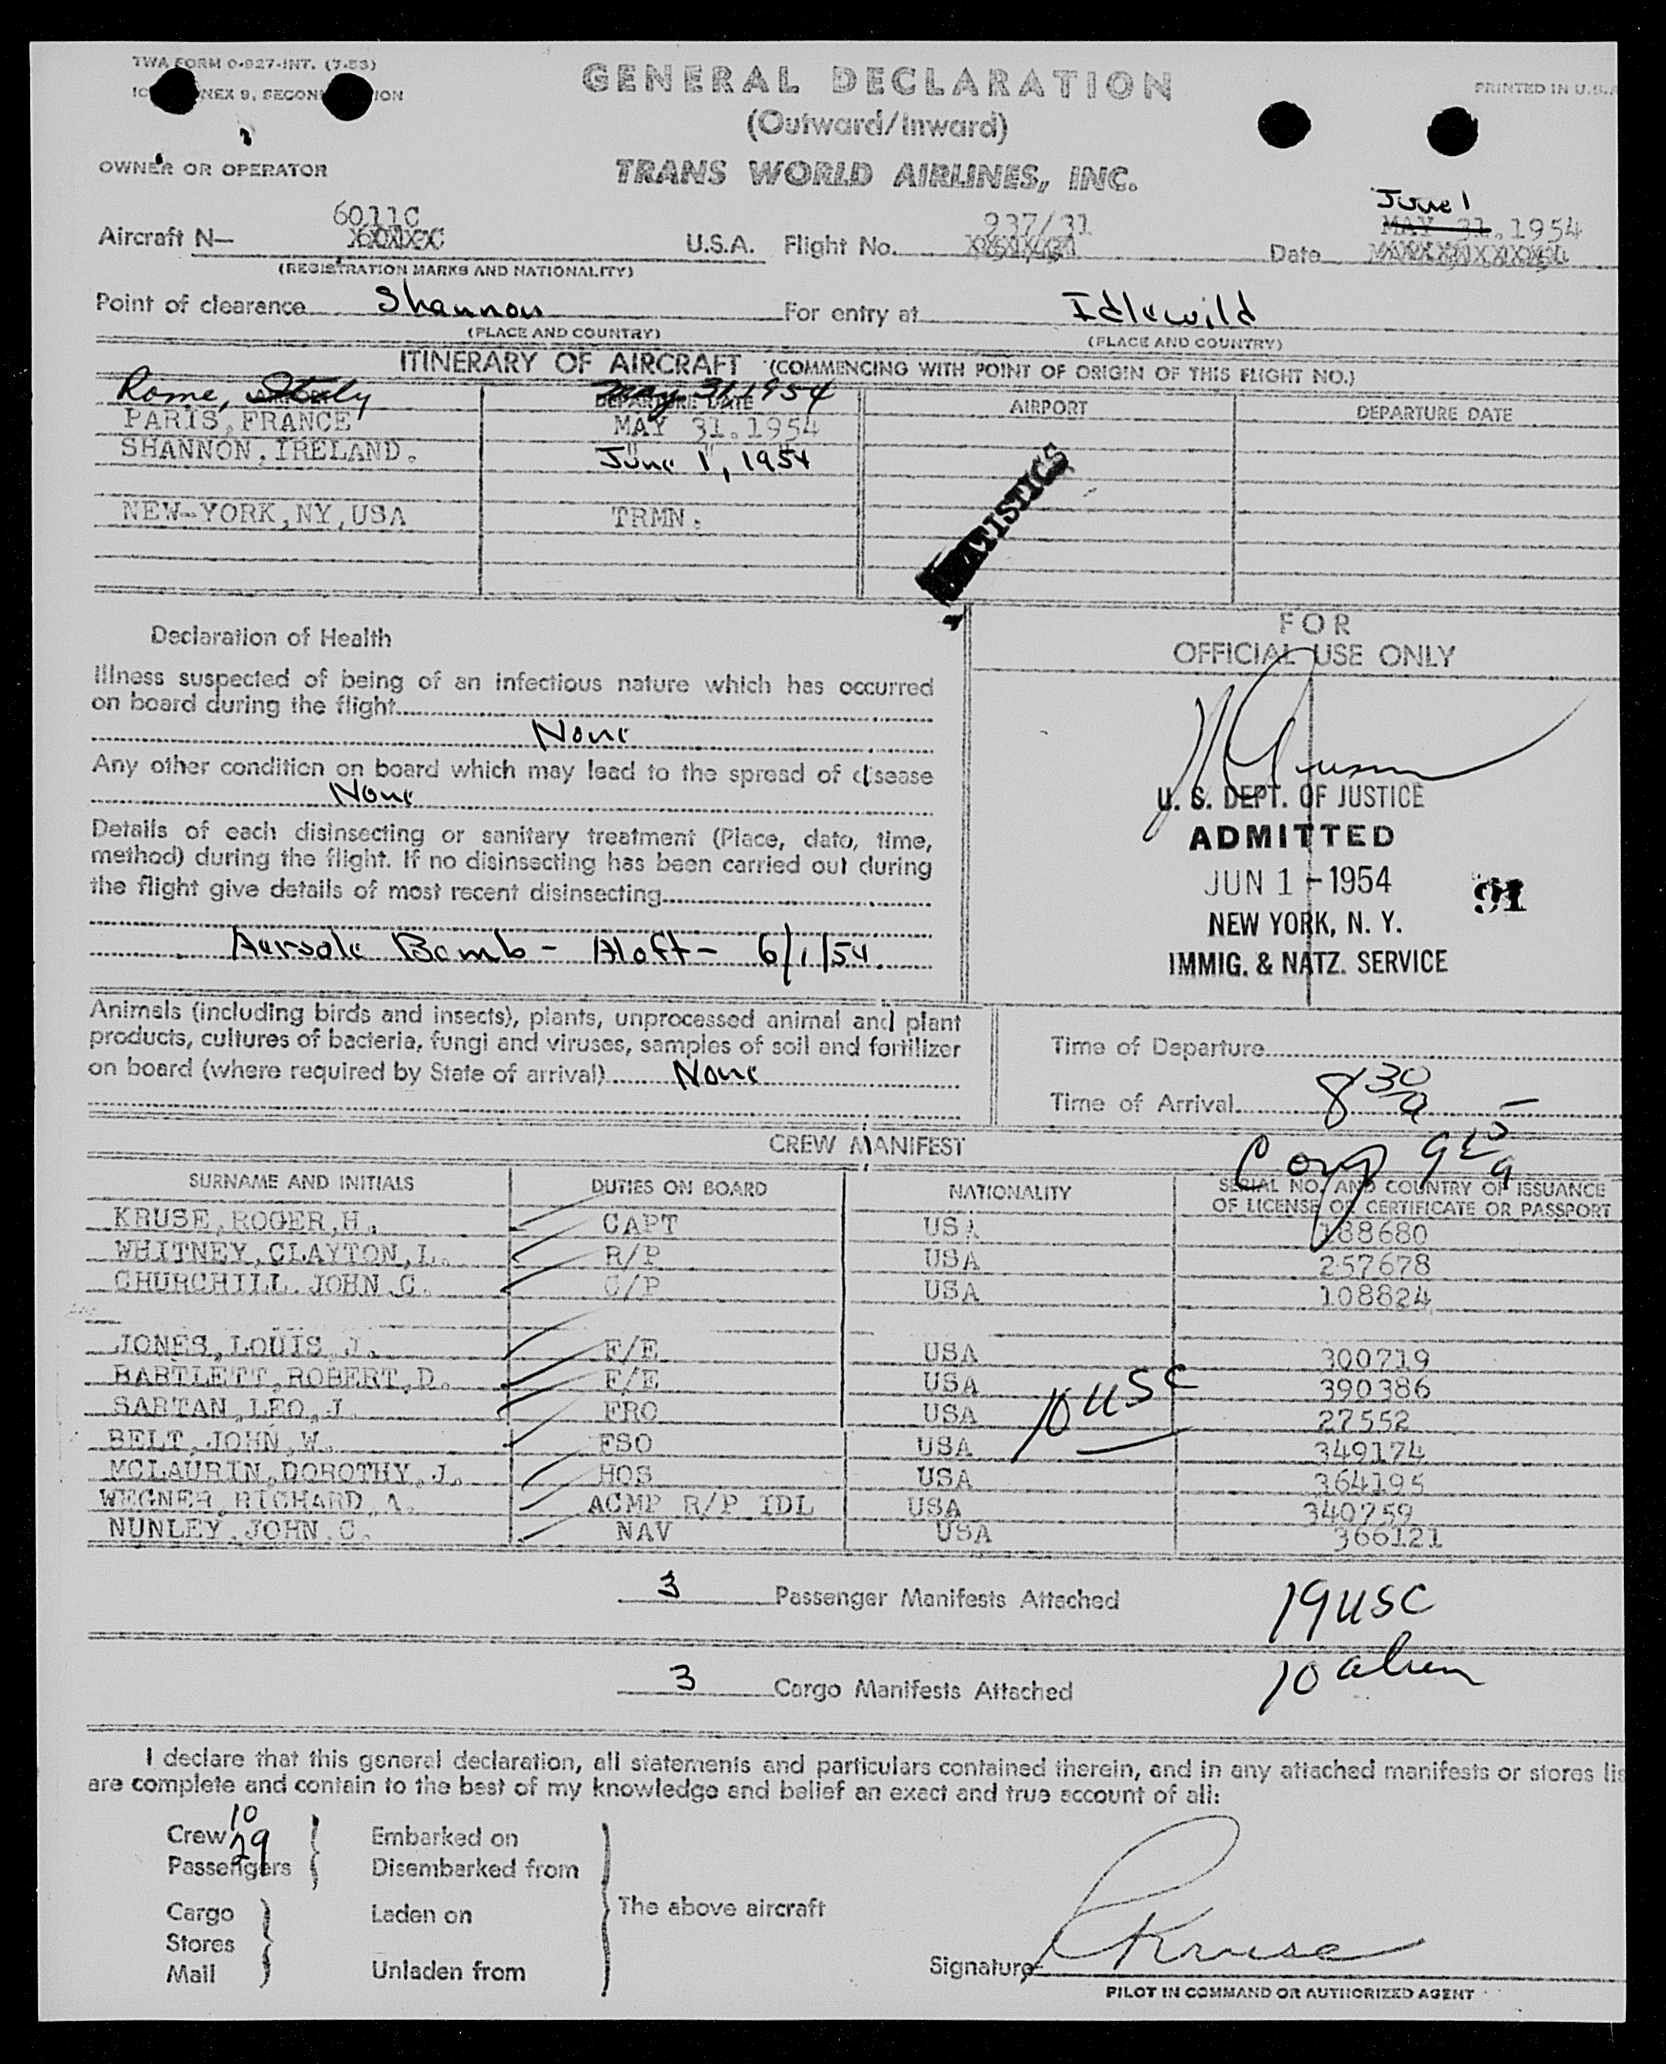 TWA FORM 0-927-INT. (7-53)
GENERAL DECLARATION
PRINTED IN U.S.A
(Outward/Inward)
OWNER OR OPERATOR
TRANS WORLD AIRLINES, INC.
June 1
6011C
937/31
MAY 31.1954
Aircraft N— U.S.A. Flight No. Date
(REGISTRATION MARKS AND NATIONALITY)
Point of clearance Shannon For entry at Idlewild
(PLACE AND COUNTRY) (PLACE AND COUNTRY)
ITINERARY OF AIRCRAFT (COMMENCING WITH POINT OF ORIGIN OF THIS FLIGHT NO.)
Rome, Italy May 31 1954
DEPARTURE DATE AIRPORT DEPARTURE DATE
PARIS, FRANCE MAY 31.1954
SHANNON, IRELAND. June 1, 1954
STATISTICS
NEW-YORK, NY, USA TRMN.
FOR
OFFICIAL USE ONLY
Declaration of Health
Illness suspected of being of an infectious nature which has occurred
on board during the flight
None
Any other condition on board which may lead to the spread of disease
None
Details of each disinsecting or sanitary treatment (Place, date, time,
method) during the flight. If no disinsecting has been carried out during
the flight give details of most recent disinsecting
Aersole Bomb - Aloft - 6/1/54
U. S. DEPT. OF JUSTICE
ADMITTED
JUN 1 - 1954 91
NEW YORK, N. Y.
IMMIG. & NATZ. SERVICE
Animals (including birds and insects), plants, unprocessed animal and plant
products, cultures of bacteria, fungi and viruses, samples of soil and fertilizer
on board (where required by State of arrival) None
Time of Departure
Time of Arrival 8 30 a
CREW MANIFEST
SURNAME AND INITIALS DUTIES ON BOARD NATIONALITY SERIAL NO. AND COUNTRY OF ISSUANCE
OF LICENSE OR CERTIFICATE OR PASSPORT
KRUSE, ROGER, H. CAPT USA 188680
WHITNEY, CLAYTON, L. R/P USA 257678
CHURCHILL. JOHN. C. C/P USA 108824
JONES, LOUIS J. F/E USA 300719
BARTLETT, ROBERT, D. F/E USA 390386
SARTAN, LEO, J. FRO USA 27552
10 USC
BELT, JOHN, W. FSO USA 349174
MCLAURIN, DOROTHY, J. HOS USA 364195
WEGNER, RICHARD, A. ACMP R/P IDL USA 340759
NUNLEY, JOHN. C. NAV USA 366121
3 Passenger Manifests Attached
19 USC
3 Cargo Manifests Attached
10 alien
I declare that this general declaration, all statements and particulars contained therein, and in any attached manifests or stores lis
are complete and contain to the best of my knowledge and belief an exact and true account of all:
Crew 10 Embarked on
Passengers 29 Disembarked from
Cargo Laden on The above aircraft
Stores
Mail Unladen from
Signature RKruse
PILOT IN COMMAND OR AUTHORIZED AGENT